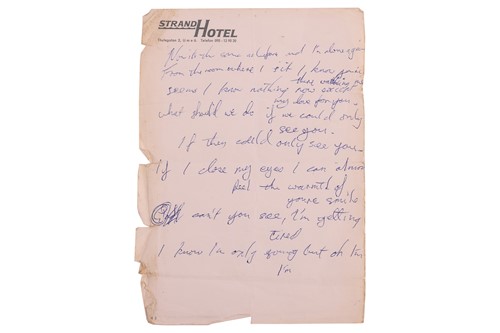 STRAND HOTEL
not I'm alone again
From the room where I sit I know you're
there watching me
seems I know nothing now except
my love for you.
what should we do if we could only
see you.
If they could only see you.
If I close my eyes I can almost
feel the warmth of
your smile
can't you see, I'm getting
tired
I know I'm only young but oh I'm
I'm